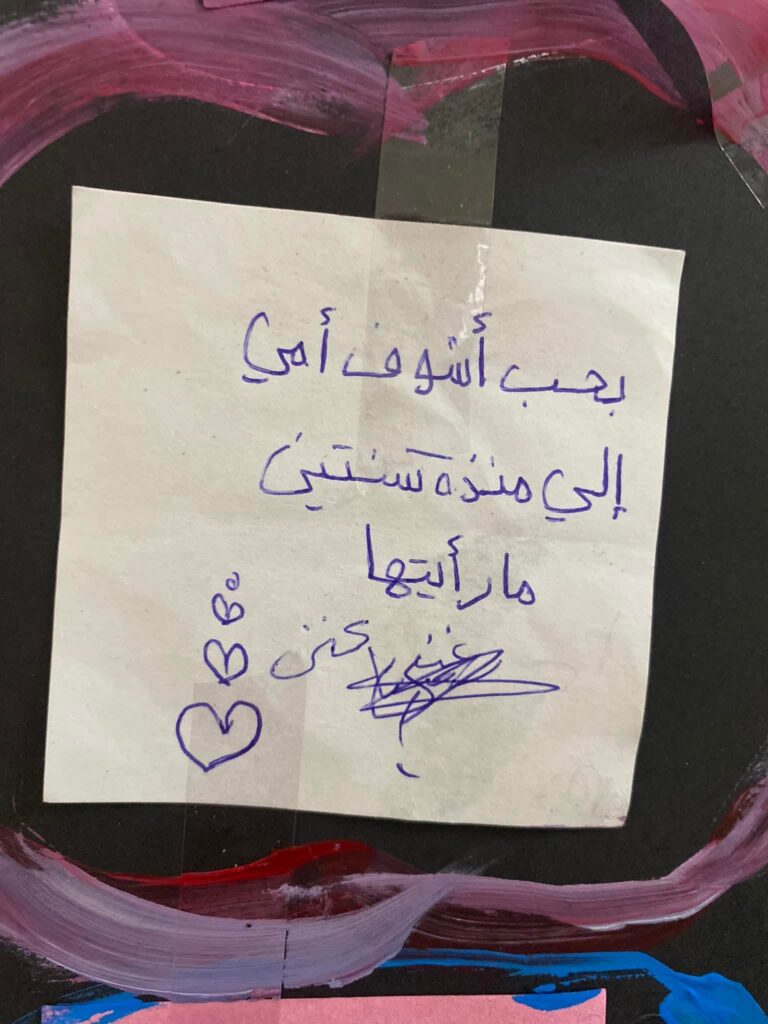 بحب أشوف أمي
إلي منذة سنتين
ما رأيتها